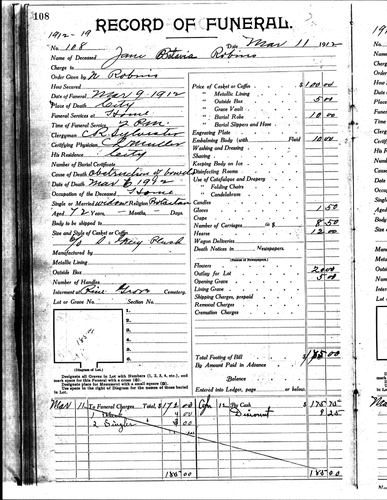 108
RECORD OF FUNERAL.
1912-19
No. 108 Date Mar 11 1912
Name of Deceased Jane Robins
Charge to
Order Given by N Robins
How Secured
Date of Funeral Mar 9 1912
Place of Death City
Funeral Services at Home
Time of Funeral Service 2 P.m.
Clergyman C.R. Sylvester
Certifying Physician Mueller
His Residence City
Number of Burial Certificate
Cause of Death Obstruction of bowels
Date of Death Mar 6 1912
Occupation of the Deceased Home
Single or Married widow Religion Protestant
Aged 72 Years, - Months, - Days.
Body to be shipped to
Size and Style of Casket or Coffin
Plush
Manufactured by
Metallic Lining
Outside Box
Number of Handles
Interment at Pine Grove Cemetery
Lot or Grave No. Section No.
1.
2.
3.
4.
5.
6.
(Diagram of Lot.)
Designate all Graves in Lot with Numbers (1, 2, 3, 4, etc.), and
mark space for this Funeral with a cross
Designate place for Monument with a small square
Use space to the right of Diagram for the names of those buried
in Lot.
Price of Casket or Coffin $100 00
" Metallic Lining
" Outside Box 5 00
" Grave Vault
" Burial Robe 10 00
" Burial Slippers and Hose
Engraving Plate
Embalming Body (with Fluid 10 00
Washing and Dressing
Shaving
Keeping Body on Ice
Disinfecting Rooms
Use of Catafalque and Drapery
" Folding Chairs
" Candelabrum
Candles
Gloves 1 50
Crape
Number of Carriages 8 50
Hearse 12 00
Wagon Deliveries
Death Notices in Newspapers.
(Names of Newspapers.)
Flowers
Outlay for Lot 20 00
Opening Grave 5 00
Lining Grave
Shipping Charges, prepaid
Removal Charges
Cremation Charges
Total Footing of Bill
By Amount Paid in Advance
Balance
Entered into Ledger, page or below.
Mar 11 To Funeral Charges Total, $172 00 12 By Cash $175 75
1 4 00 Discount 9 25
2
185 00 185 00